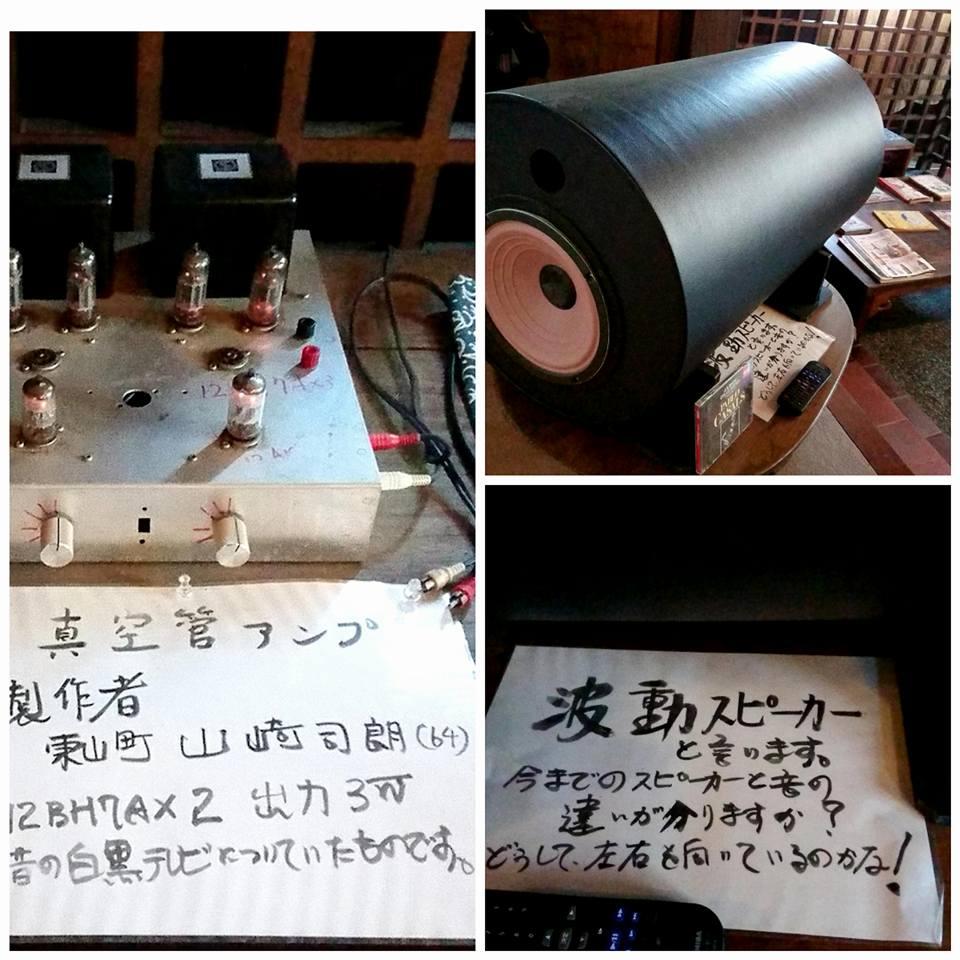 12 7AX3
真空管アンプ
製作者
東山町 山崎司朗(64)
12BH7AX2 出力3W
昔の白黒テレビについていたものです。
波動スピーカー
と言います。
今までのスピーカーと音の
違いが分りますか?
どうして、左右を向いているのかな!
波動スピーカー
と言います。